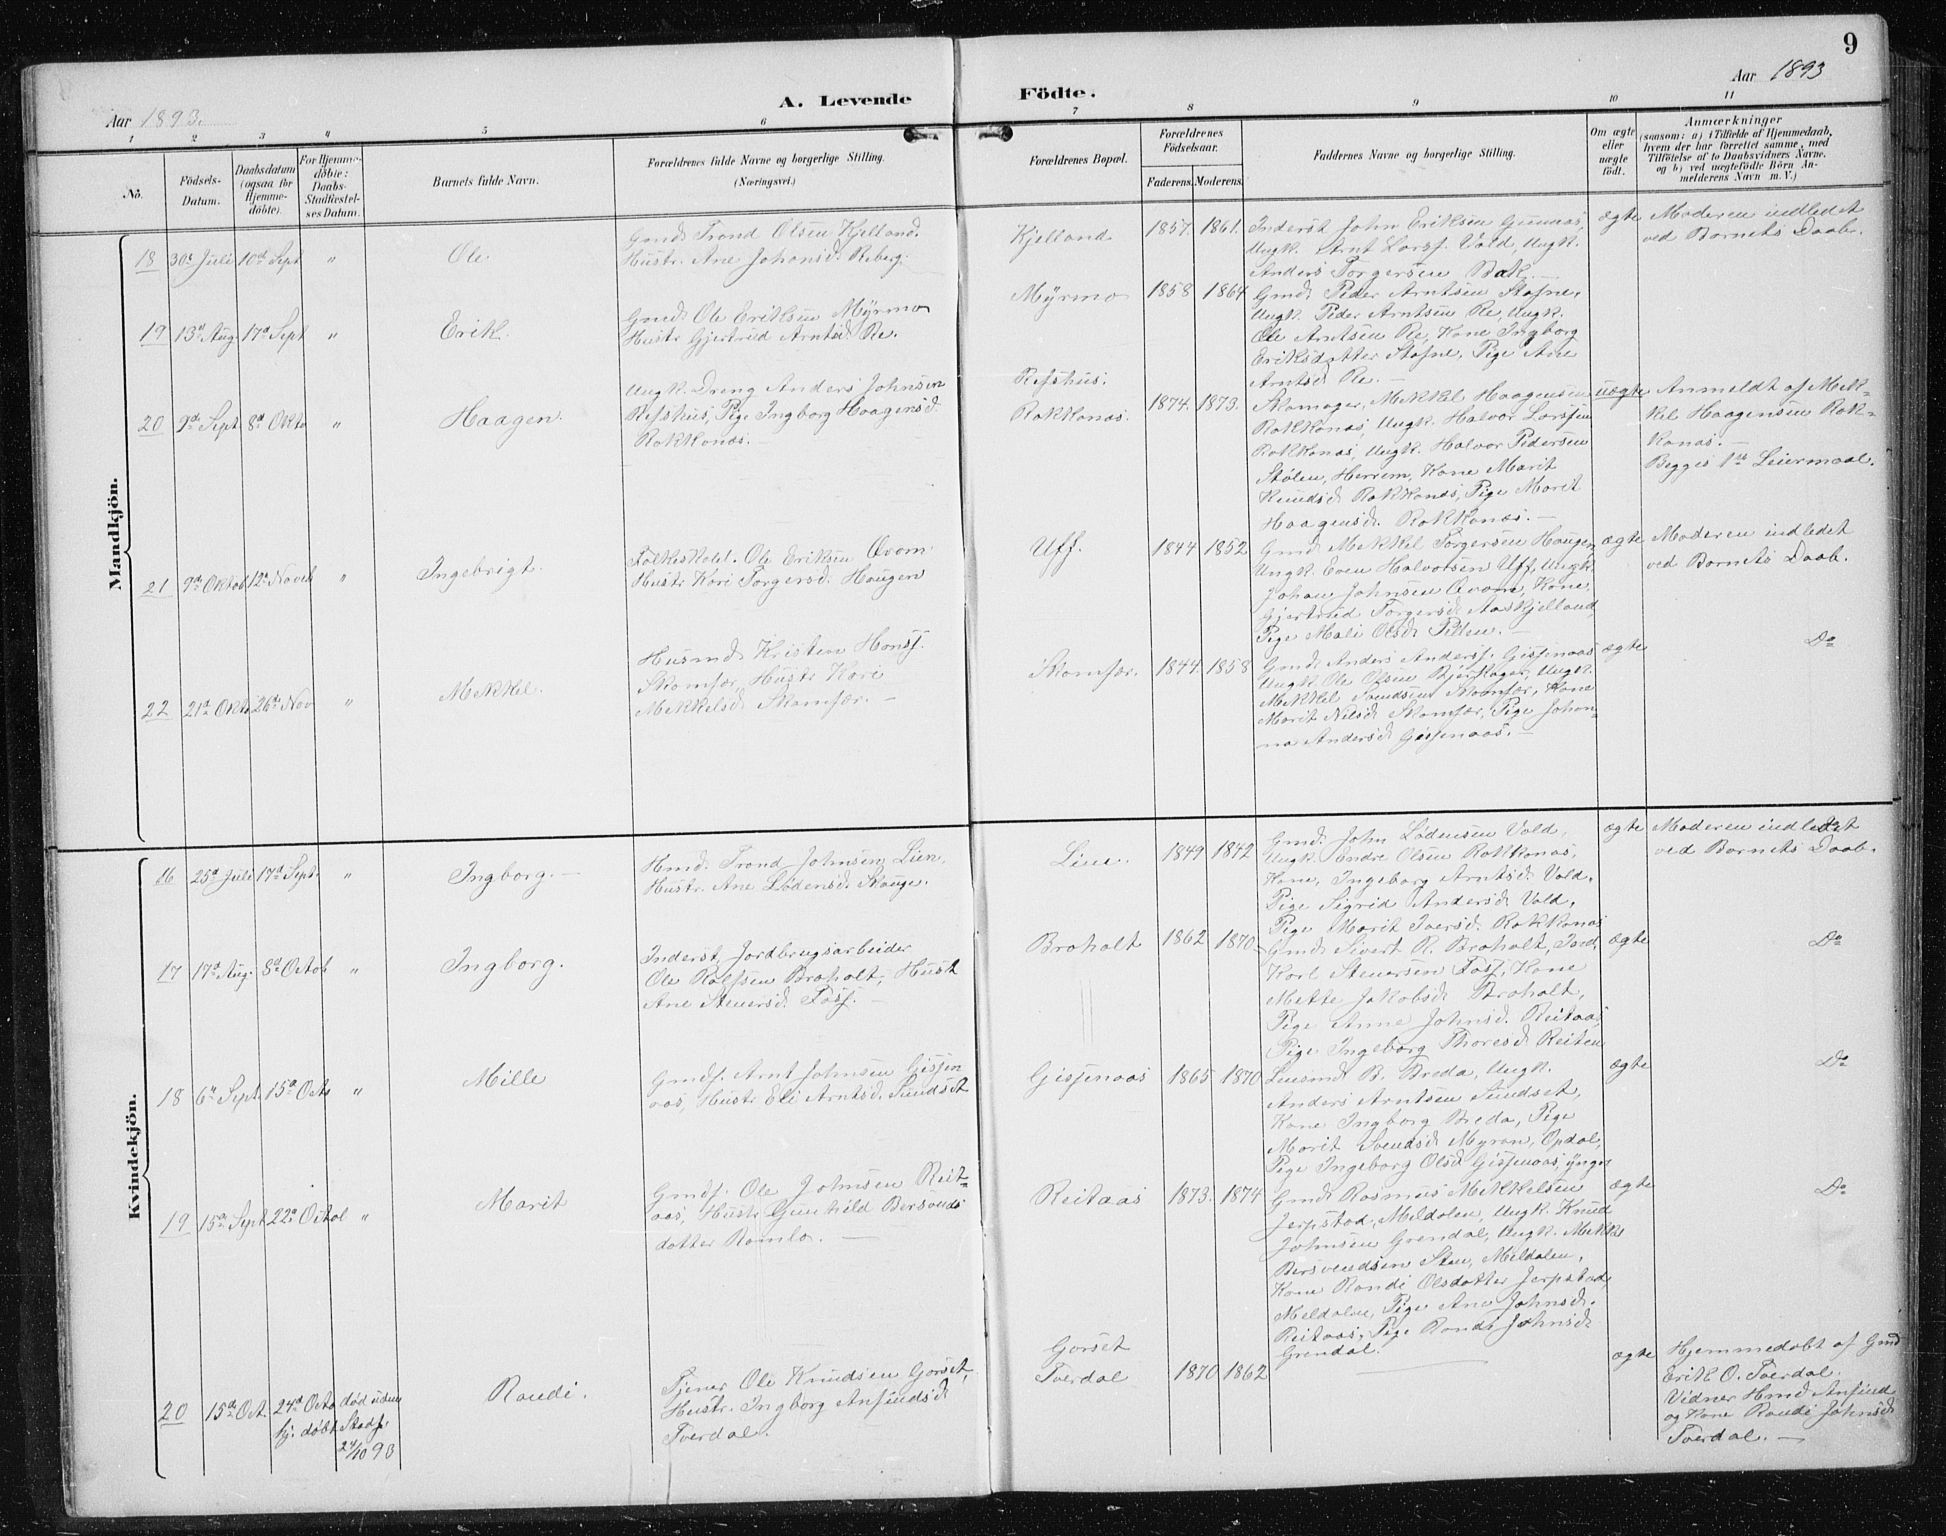 9
Aar 1893.
A. Levende Födte.
Aar 1893
1 2 3 4 5 6 7 8 9 10 11
No.
Födsels-
Datum.
Daabsdatum
(ogsaa for
Hjemme-
døbte).
For Hjemme-
døbte:
Daabs-
Stadfæstel-
ses Datum.
Barnets fulde Navn.
Forældrenes fulde Navne og borgerlige Stilling.
(Næringsvei.)
Forældrenes Bopæl.
Forældrenes
Födselsaar.
Faderens. Moderens.
Faddernes Navne og borgerlige Stilling.
Om ægte
eller
uægte
födt.
Anmærkninger
(saasom: a) i Tilfælde af Hjemmedaab,
hvem der har forrettet samme, med
Tilföielse af to Daabsvidners Navne.
og b) ved uægtefödte Börn An-
melderens Navn m. V.)
Mandkjön.
18 30te Juli 10de Sept "
Ole.
Gmd. Trond Olsen Kjelland.
Hustr. Ane Johansd. Reberg.
Kjelland
1857. 1861.
Inderst John Eriksen Gunnas,
Ungk. Arnt Larsf. Vold, Ungk.
Anders Torgersen Bak.—
ægte
Moderen indledet
ved Barnets Daab.
19 13de Aug. 17de Sept "
Erik.
Gmd. Ole Eriksen Myrmo
Hustr. Gjertrud Arntsd. Re.
Myrmo
1858 1864
Gmd. Peder Arntsen Stofne,
Ungk. Peder Arntsen Re, Ungk.
Ole Arntsen Re, Kone Ingborg
Eriksdatter Stofne, Pige Ane
Arntsd. Re.—
20 9de Sept. 8de Okto "
Haagen.
Ungk. Dreng Anders Johnsen
Refshus, Pige Ingborg Haagensd.
Rokkones.—
Refshus.
Rokkonas.
1874. 1873.
Skomager, Mekkel Haagensen
Rokkonas, Ungk. Halvor Larssen
Rokkonas, Ungk. Halvor Pedersen
Stolen, Herrem, Kone Marit
Knudsd. Rokkonas, Pige Marit
Haagensd. Rokkonas.—
uægte
Anmeldt af Mek-
kel Haagensen Rok-
konas.—
Begges 1ste Leiermaal.
21 9de Oktob 12te Noveb "
Ingebrigt.
Folkeskolel. Ole Eriksen Qvam
Hustr. Kari Torgersd. Haugen
Uff.
1844 1852
Gmd. Mekkel Torgersen Haugen
Ungk. Even Halvorsen Uff, Ungk.
Johan Johnsen Qvam, Kone,
Gjertrud Torgersd. Aaskjelland,
Pige Mali Olsd. Pelten.—
ægte
Moderen indledet
ved Barnets Daab.
22 21de Okto 26de Nov "
Mekkel.
Husmd. Kristen Hansf.
Skomfær, Hustr. Kari
Mekkelsd. Skomfær.—
Skomfær.
1844 1858
Gmd. Anders Andersf. Gisjenaas
Ungk. Ole Olsen Bjerkager, Ungk.
Mekkel Svendsen Skomfær, Kone
Marit Nilsd. Skomfær, Pige Johan-
na Andersd. Gisjenaas.—
ægte
Do
Kvindekjön.
16 25de Juli 17de Sept. "
Ingborg.—
Hmd. Trond Johnsen Lien,
Hustr. Ane Lodensd. Skauge.
Lien.
1849 1842
Gmd. John Lodensen Vold,
Ungk. Endre Olsen Rokkonas,
Kone, Ingeborg Arntsd. Vold,
Pige Sigrid Andersd. Vold,
Pige Marit Iversd. Rokkonas
ægte
Moderen indledet
ved Barnets Daab.
17 17de Aug. 8de Octob "
Ingborg.
Inderst, Jordbrugsarbeider
Ole Rolfsen Broholt, Hust.
Ane Steversd. Fosf.—
Broholt
1862 1870
Gmd. Sivert R. Broholt, Ind.
Karl Steversen Fosf, Kone
Mette Jakobsd. Broholt,
Pige Anne Johnsd. Reitaas,
Pige Ingeborg Thoresd. Reiten
ægte
Do
18 6te Sept. 15de Octo "
Mille
Gmdf. Arnt Johnsen Gisjen
aas, Hustr. Eli Arntsd. Sundset
Gisjenaas
1865 1870
Lensmd. B. Breda, Ungk.
Anders Arntsen Sundset,
Kone Ingborg Breda, Pige
Marit Svendsd. Myran, Opdal,
Pige Ingeborg Olsd. Gisjenaas, ynger
ægte
Do
19 15de Sept 22de Octob "
Marit
Gmdf. Ole Johnsen Reit-
aas, Hustr. Gunhild Bersvends
datter Ramlo.—
Reitaas
1873. 1874
Gmd. Rasmus Mekkelsen
Jerpstad, Meldalen, Ungk. Knud
Johnsen Grendal, Ungk. Mekkel
Bersvendsen Sten, Meldalen,
Kone Randi Olsdatter Jerpstad,
Meldalen, Pige Ane Johnsd.
Reitaas, Pige Randi Johnsd.
Grendal.
ægte
Do
20 15de Oct. 24de Octo død uden
hj. døbt Stadf.
24/10 93
Randi.
Tjener Ole Knudsen Gorset,
Hustr. Ingborg Ansfundsd
Tverdal.
Gorset
Tverdal
1870 1862
ægte
Hjemmedøbt af Gmd
Erik O. Tverdal.
Vidner Hmd Ansfund
og Kone Randi Johnsd.
Tverdal.—